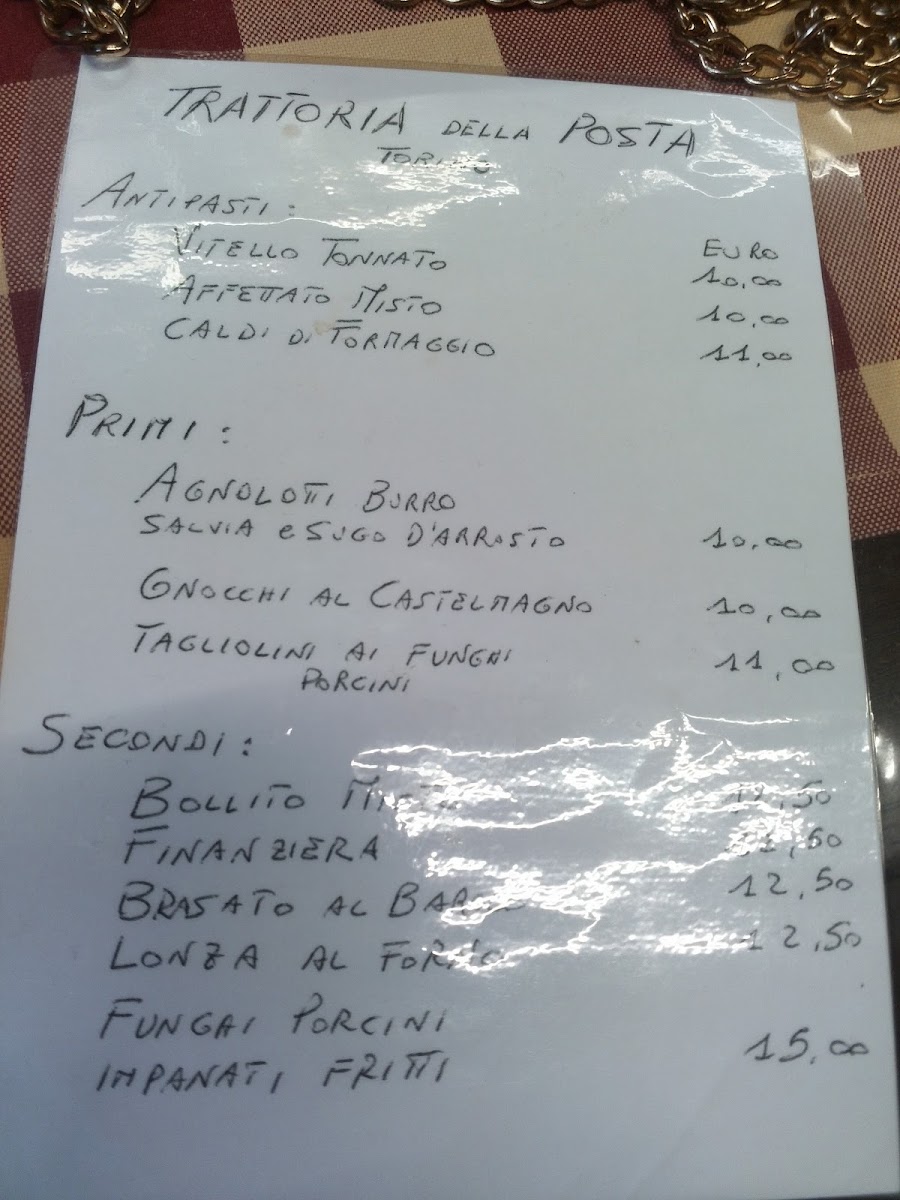 TRATTORIA DELLA POSTA
TORINO
ANTIPASTI:
EURO
VITELLO TONNATO 10,00
AFFETTATO MISTO 10,00
CALDI DI FORMAGGIO 11,00
PRIMI:
AGNOLOTTI BURRO
SALVIA e SUGO D'ARROSTO 10,00
GNOCCHI AL CASTELMAGNO 10,00
TAGLIOLINI AI FUNGHI 11,00
PORCINI
SECONDI:
BOLLITO MISTO 12,50
FINANZIERA 12,50
BRASATO AL 12,50
LONZA AL FORNO 12,50
FUNGHI PORCINI
IMPANATI FRITTI 15,00